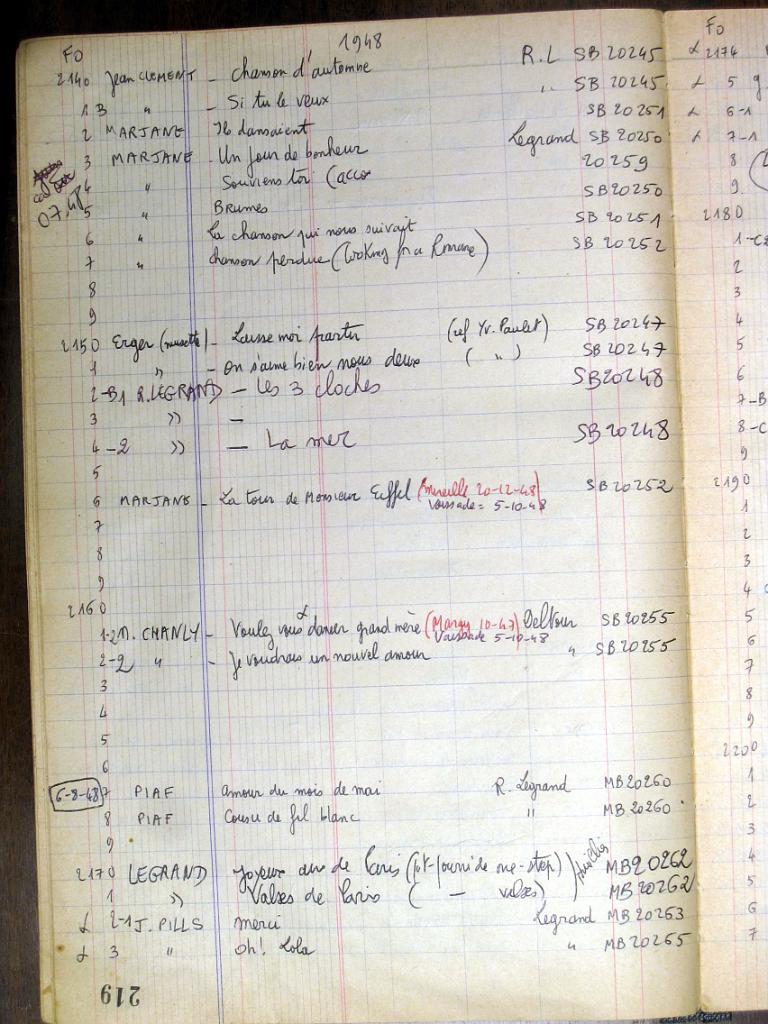 FO 1948
2140 Jean CLEMENT - Chanson d'automne R.L SB 20245
1 B " - Si tu le veux " SB 20245
2 MARJANE Ils dansaient SB 20251
3 MARJANE - Un jour de bonheur Legrand SB 20250
4 " Souviens toi 20259
07.48
5 " Brumes SB 20250
6 " La chanson qui nous suivait SB 20251
7 " Chanson perdue (Looking for a Romane) SB 20252
8
9
2150 Erger (musette) - Laisse moi partir (ref Yv. Paulet) SB 20247
1 " - On s'aime bien nous deux ( " ) SB 20247
2-B1 R.LEGRAND - Les 3 cloches SB20248
3 " -
4-2 " - La mer SB 20248
5
6 MARJANE - La tour de Monsieur Eiffel (Mireille 20-12-48) SB 20252
Voissade = 5-10-48
7
8
9
2160
1-2 M. CHANLY - Voulez vous danser grand mère (Margy 10-47) Deltour SB 20255
Voissade 5-10-48
2-2 " - Je voudrais un nouvel amour " SB 20255
3
4
5
6
6-8-48 7 PIAF amour du mois de mai R. Legrand MB 20260
8 PIAF Cousu de fil blanc " MB 20260
9
2170 LEGRAND Joyeux de Paris (pot-pourri de one-step) MB20262
1 " Valses de Paris ( - valses) MB 20262
2-1 J. PILLS merci Legrand MB 20263
3 " Oh! Lola " MB 20265
219
FO
2174
5
6-1
7-1
8
9
2180
1
2
3
4
5
6
7-B
8-C
9
2190
1
2
3
4
5
6
7
8
9
2200
1
2
3
4
5
6
7